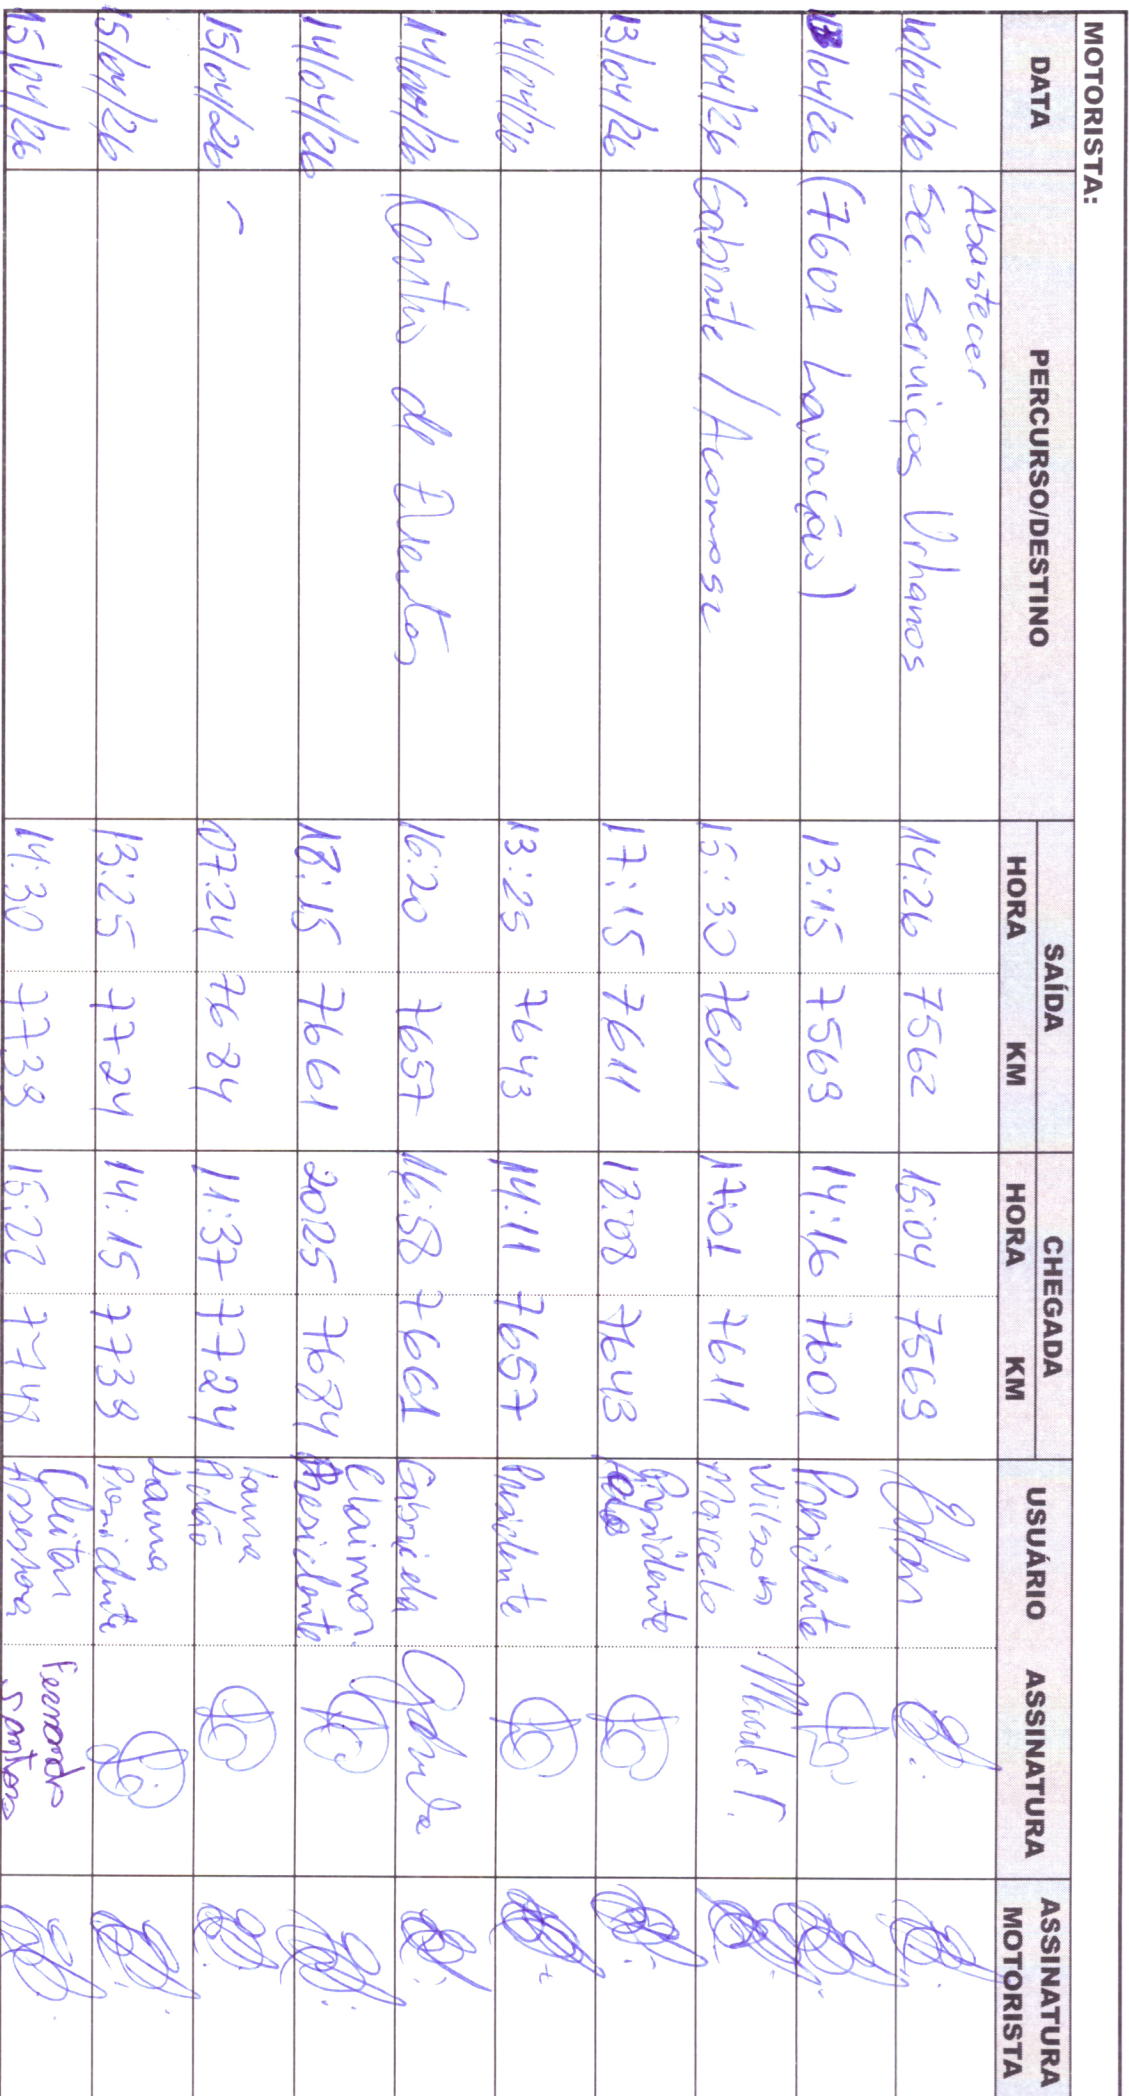 MOTORISTA:
DATA PERCURSO/DESTINO SAÍDA HORA KM CHEGADA HORA KM USUÁRIO ASSINATURA ASSINATURA MOTORISTA
Abastecer
10/04/26 Sec. Serviços Urbanos 14:26 7562 15:04 7569
13/04/26 (7601 Lavação) 13:15 7569 14:16 7601 Presidente
13/04/26 Gabinete / 15:30 7601 17:01 7611 Wilson Marcelo
13/04/26 17:15 7611 18:08 7643 Presidente
14/04/26 13:25 7643 14:11 7657 Presidente
14/04/26 Centro de Eventos 16:20 7657 16:58 7661 Gabriela
14/04/26 18:15 7661 2025 7684 Claimor Presidente
15/04/26 - 07:24 7684 11:37 7724
15/04/26 13:25 7724 14:15 7738 Presidente
15/04/26 14:30 7738 15:22 7748 Fernando